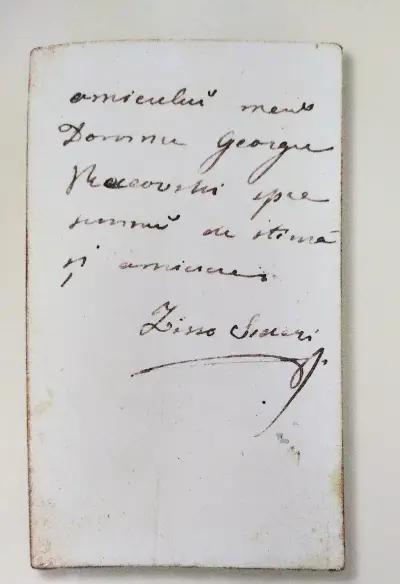 amiculuĭ meŭ
Domnu George
Racovski spre
semnŭ de stimă
și amicie.
Zisso Sideri